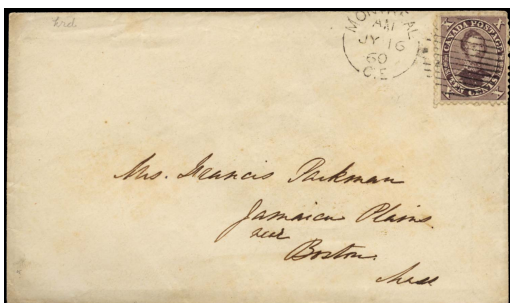 MONTREAL
AM
JY 16
60
C.E
CANADA POSTAGE
X X
TEN CENTS
Mrs. Francis Parkman
Jamaica Plains
near
Boston
Mass